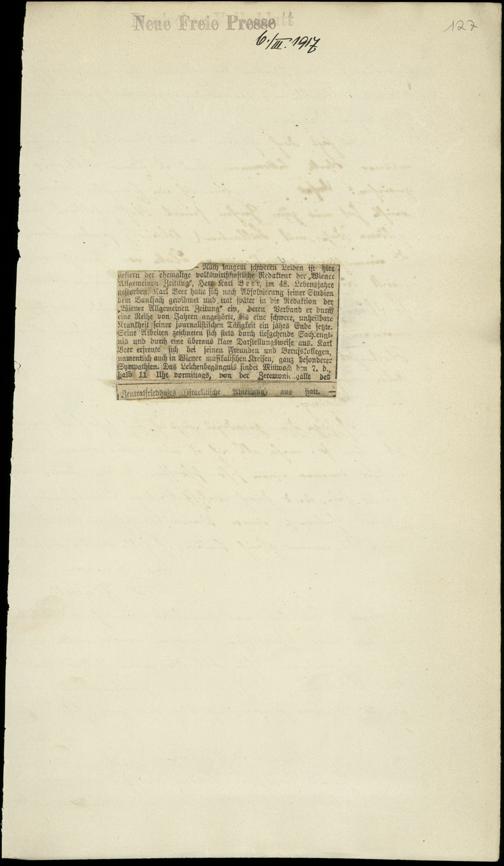 Neue Freie Presse
127
6./III. 1917
— Nach langem schweren Leiden ist hier
gestern der ehemalige volkswirtschaftliche Redakteur der „Wiener
Allgemeinen Zeitung", Herr Karl Beer, im 48. Lebensjahre
gestorben. Karl Beer hatte sich nach Absolvierung seiner Studien
dem Bankfach gewidmet und trat später in die Redaktion der
„Wiener Allgemeinen Zeitung" ein, deren Verband er durch
eine Reihe von Jahren angehörte, bis eine schwere, unheilbare
Krankheit seiner journalistischen Tätigkeit ein jähes Ende setzte.
Seine Arbeiten zeichneten sich stets durch tiefgehende Sachkennt-
nis und durch eine überaus klare Darstellungsweise aus. Karl
Beer erfreute sich bei seinen Freunden und Berufskollegen,
namentlich auch in Wiener musikalischen Kreisen, ganz besonderer
Sympathien. Das Leichenbegängnis findet Mittwoch den 7. d.,
halb 11 Uhr vormittags, von der Zeremonienhalle des
Zentralfriedhofes (israelitische Abteilung) aus statt.